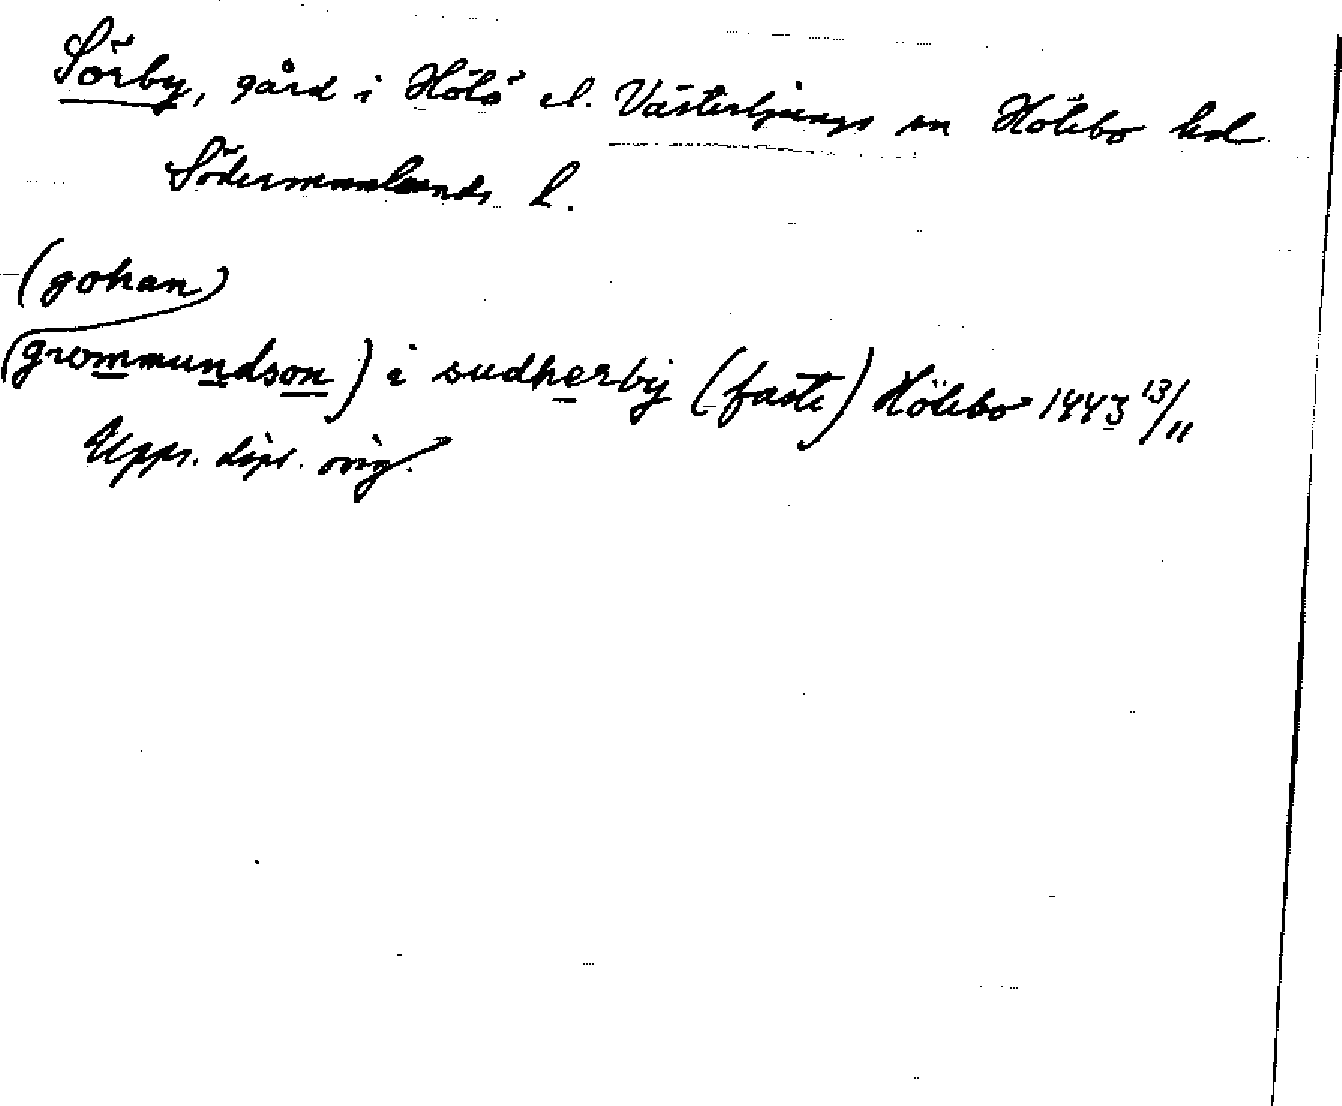 Sörby, gård i Hölö el. Västerljungs sn Hölebo hd
Södermanlands l.
(gohan)
(grommundson) i sudherby (faste) Hölebo 1443 13/11
Upps. dipl. orig.